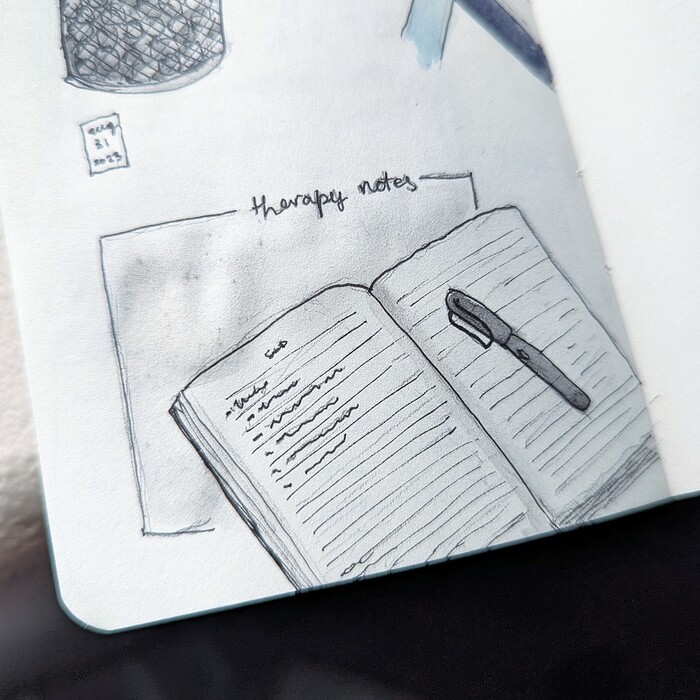 aug
31
2023
therapy notes